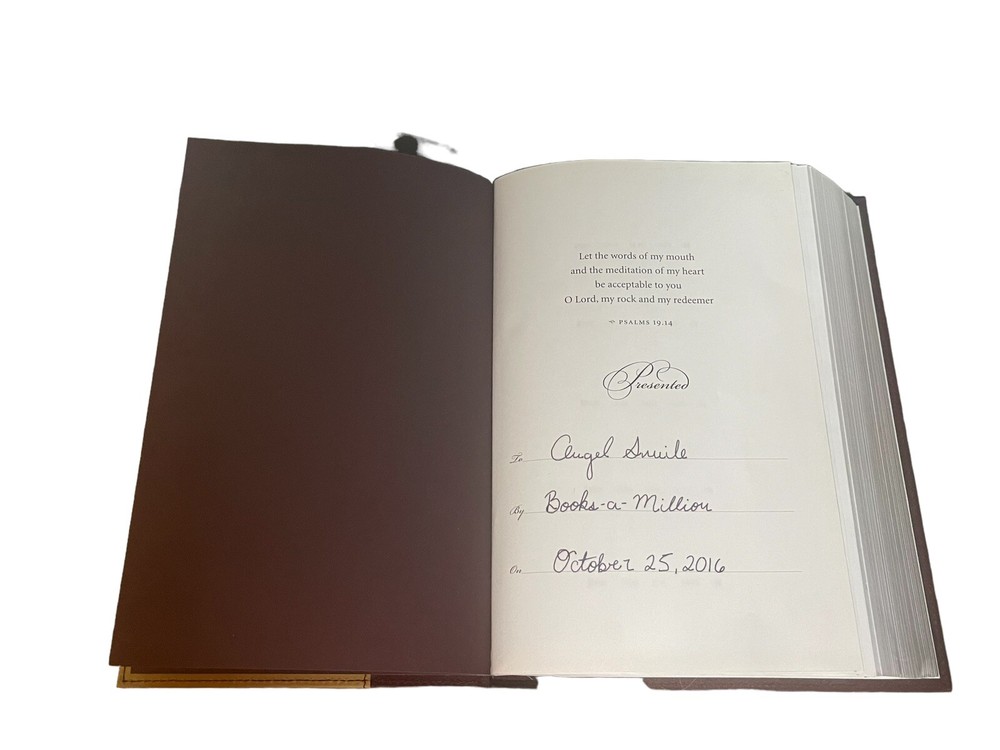 Let the words of my mouth
and the meditation of my heart
be acceptable to you
O Lord, my rock and my redeemer
PSALMS 19.14
Presented
To Angel Smile
By Books-a-Million
On October 25, 2016